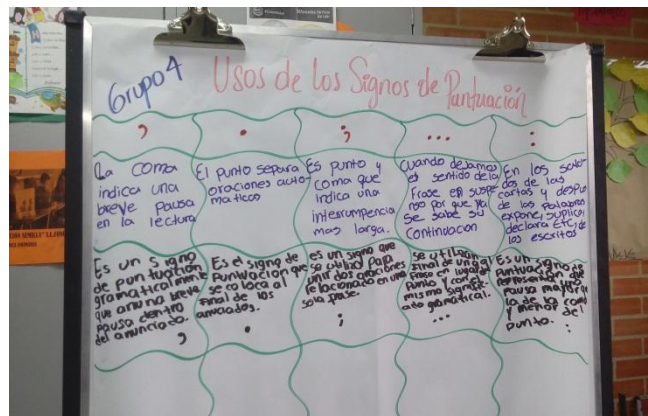 Grupo 4
Usos de los Signos de Puntuación
,
.
;
...
:
La coma
indica una
breve pausa
en la lectura
El punto separa
oraciones auto
maticos
Es punto y
coma que
indica una
interrumpencia
mas larga.
Cuando dejamos
el sentido de la
frase en suspe
nso por que ya
se sabe su
continuacion
En los salu
dos de las
cartas y despu
de las palabras
expone, suplica,
declara ETC, de
los escritos
Es un signo
de puntuación
gramaticalmente
que anuna breve
pausa dentro
del anunciado.
,
Es el signo de
Puntuación que
se coloca al
final de los
anuciados.
.
es un signo que
se utiliza para
unir dos oraciones
relacionado en una
sola frase.
;
se utiliza
final de una
frase en lugar del
punto y con el
mismo signific
ato gramatical.
...
Es un signo de
Puntuación que
representa una
pausa mayor a
la de la coma
y menor del
punto.
: